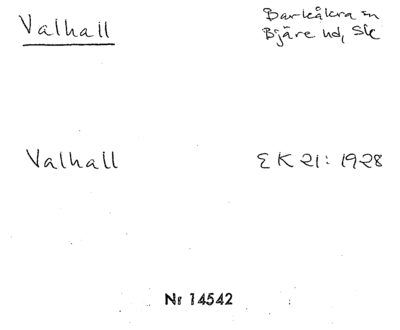 Valhall
Barkåkra sn
Bjäre hd, Sk
Valhall
EK 21: 1928
Nr 14542